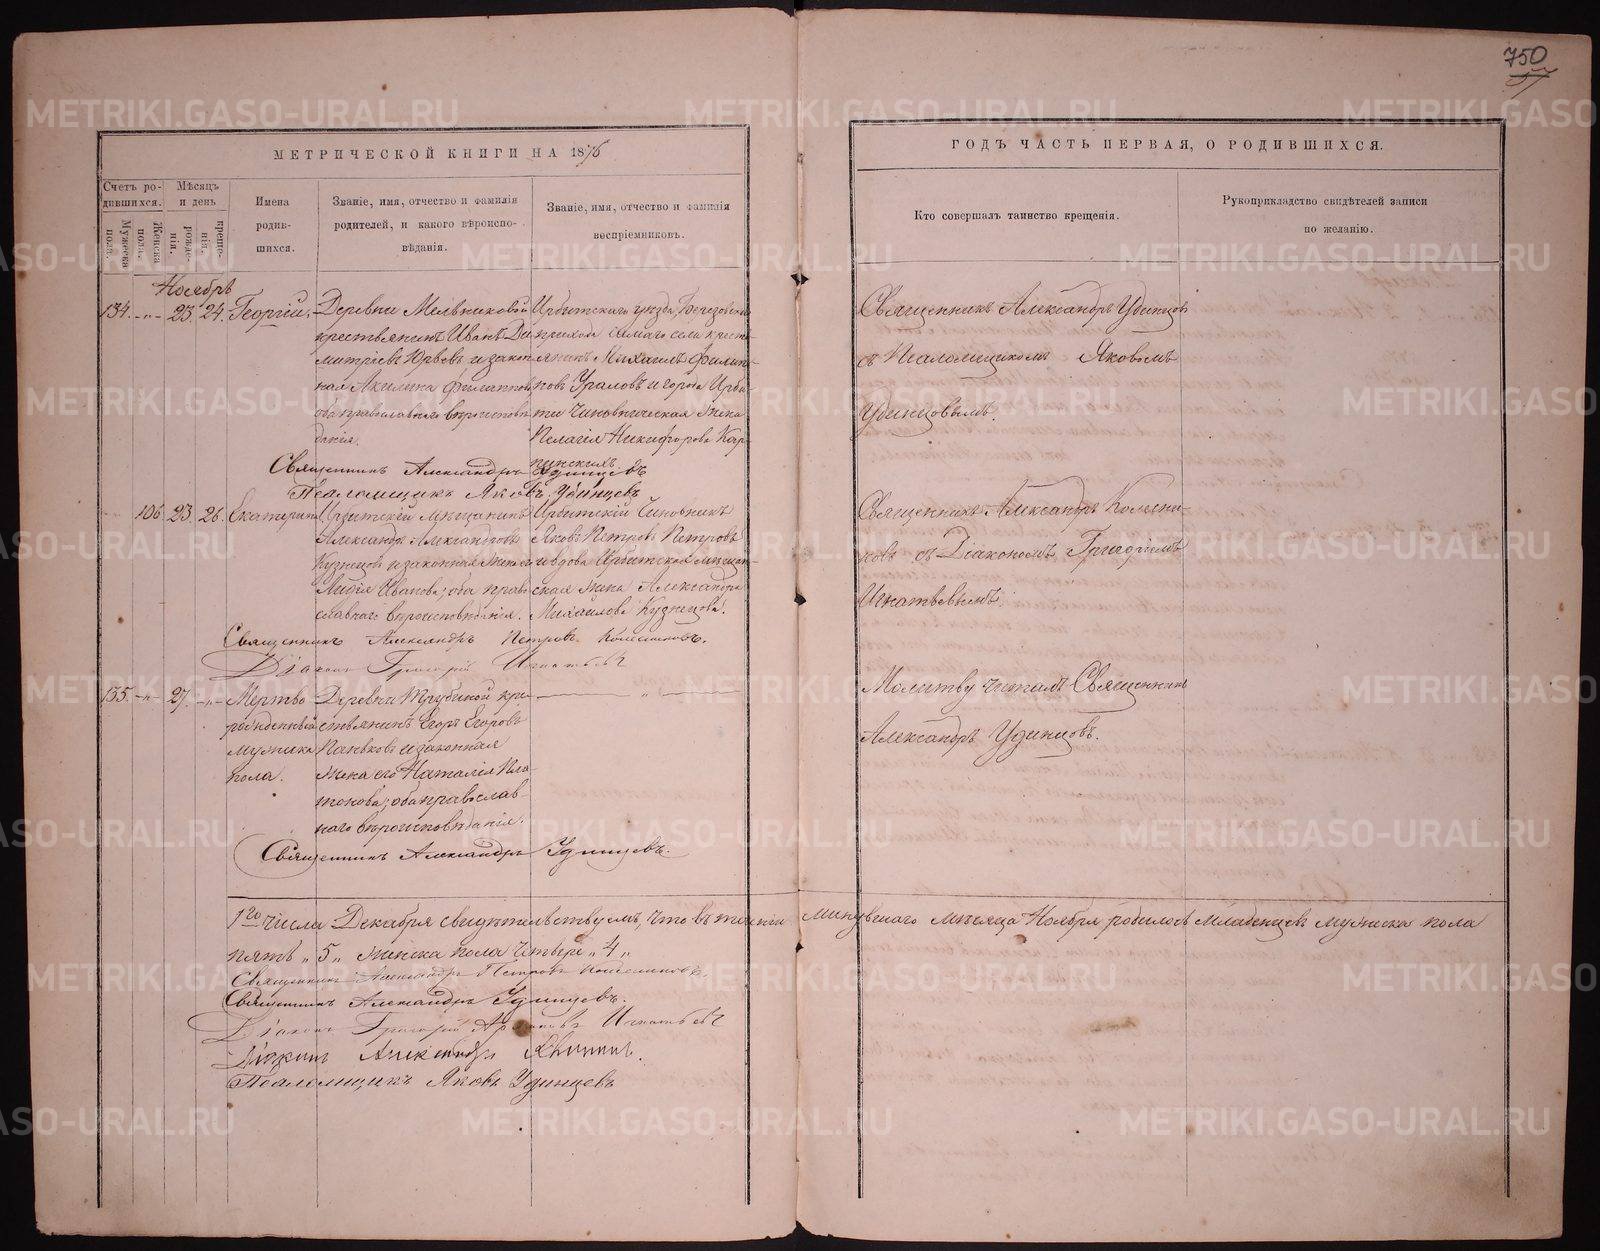 750
57
МЕТРИЧЕСКОЙ КНИГИ НА 1876
ГОДЪ ЧАСТЬ ПЕРВАЯ, О РОДИВШИХСЯ.
Счетъ ро-
дившихся.
Мужеска
пола.
Женска
пола.
Мѣсяцъ
и день
рожде-
нія.
креще-
нія.
Имена
родив-
шихся.
Званіе, имя, отчество и фамилія
родителей, и какого вѣроиспо-
вѣданія.
Званіе, имя, отчество и фамилія
воспріемниковъ.
Кто совершалъ таинство крещенія.
Рукоприкладство свидѣтелей записи
по желанію.
Ноябрь
134. -„- 23. 24. Георгій.
Деревни Мельниковой
крестьянинъ Иванъ Ди
митріевъ Юрьевъ и закон
ная Акилина Филиппов
оба православнаго вѣроисповѣ
данія.
Ирбитскаго уѣзда,
прихода самаго села кресть
янинъ Михаилъ Филип-
повъ Ураловъ и города Ирби-
ти чиновническая жена
Пелагія Никифорова
Священникъ Александръ Удинцовъ
съ Псаломщикомъ Яковымъ
Удинцовымъ.
Священникъ Александръ Удинцевъ
Псаломщикъ Яковъ Удинцевъ
106 23. 26. Екатерина
Ирбитскій мѣщанинъ
Александръ Александровъ
Кузнецов и законная жена
Лидія Иванова; оба право
славнаго вѣроисповѣданія.
Ирбитскій Чиновникъ
Яковъ Петровъ Петровъ
и вдова Ирбитская мѣщан
ская жена Александра
Михаилова Кузнецова.
Священникъ Александръ Колесни-
ковъ съ Діакономъ Григоріемъ
Игнатьевымъ.
Священникъ Александръ Петровъ Колесниковъ.
Діаконъ Григорій Игнатьевъ
135. -„- 27. -„- Мертво
рожденный
мужска
пола.
Деревни Трубиной кре-
стьянинъ Егоръ Егоровъ
Паньковъ и законная
жена его Наталія Пла-
тонова; оба православ-
наго вѣроисповѣданія.
„
Молитву читалъ Священникъ
Александръ Удинцовъ.
Священникъ Александръ Удинцевъ.
1го числа Декабря свидѣтельствуемъ, что въ теченіи минувшаго мѣсяца Ноября родилось младенцевъ мужска пола
пять „ 5 „ женска пола четыре „ 4 „
Священникъ Александръ Петровъ Колесниковъ.
Священникъ Александръ Удинцевъ.
Діаконъ Григорій Игнатьевъ
Діаконъ Александръ
Псаломщикъ Яковъ Удинцевъ
METRIKI.GASO-URAL.RU